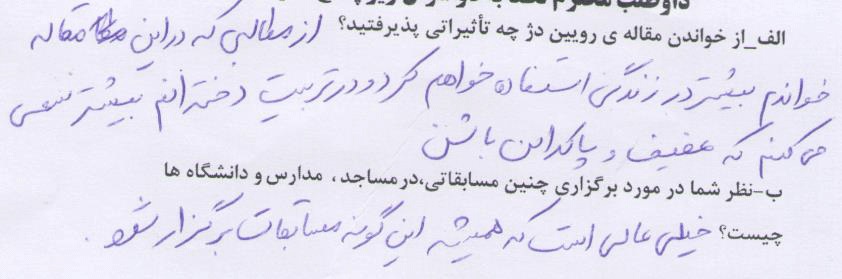 داوطلب محترم لطفا به دو سؤال زیر پاسخ
الف_از خواندن مقاله ی رویین دژ چه تأثیراتی پذیرفتید؟ از مطالبی که در این مقاله
خواندم بیشتر در زندگی استفاده خواهم کرد و در تربیت دخترانم بیشتر سعی
می کنم که عفیف و پاکدامن باشن
ب-نظر شما در مورد برگزاری چنین مسابقاتی،در مساجد، مدارس و دانشگاه ها
چیست؟ خیلی عالی است که همیشه این گونه مسابقات برگزار شود.